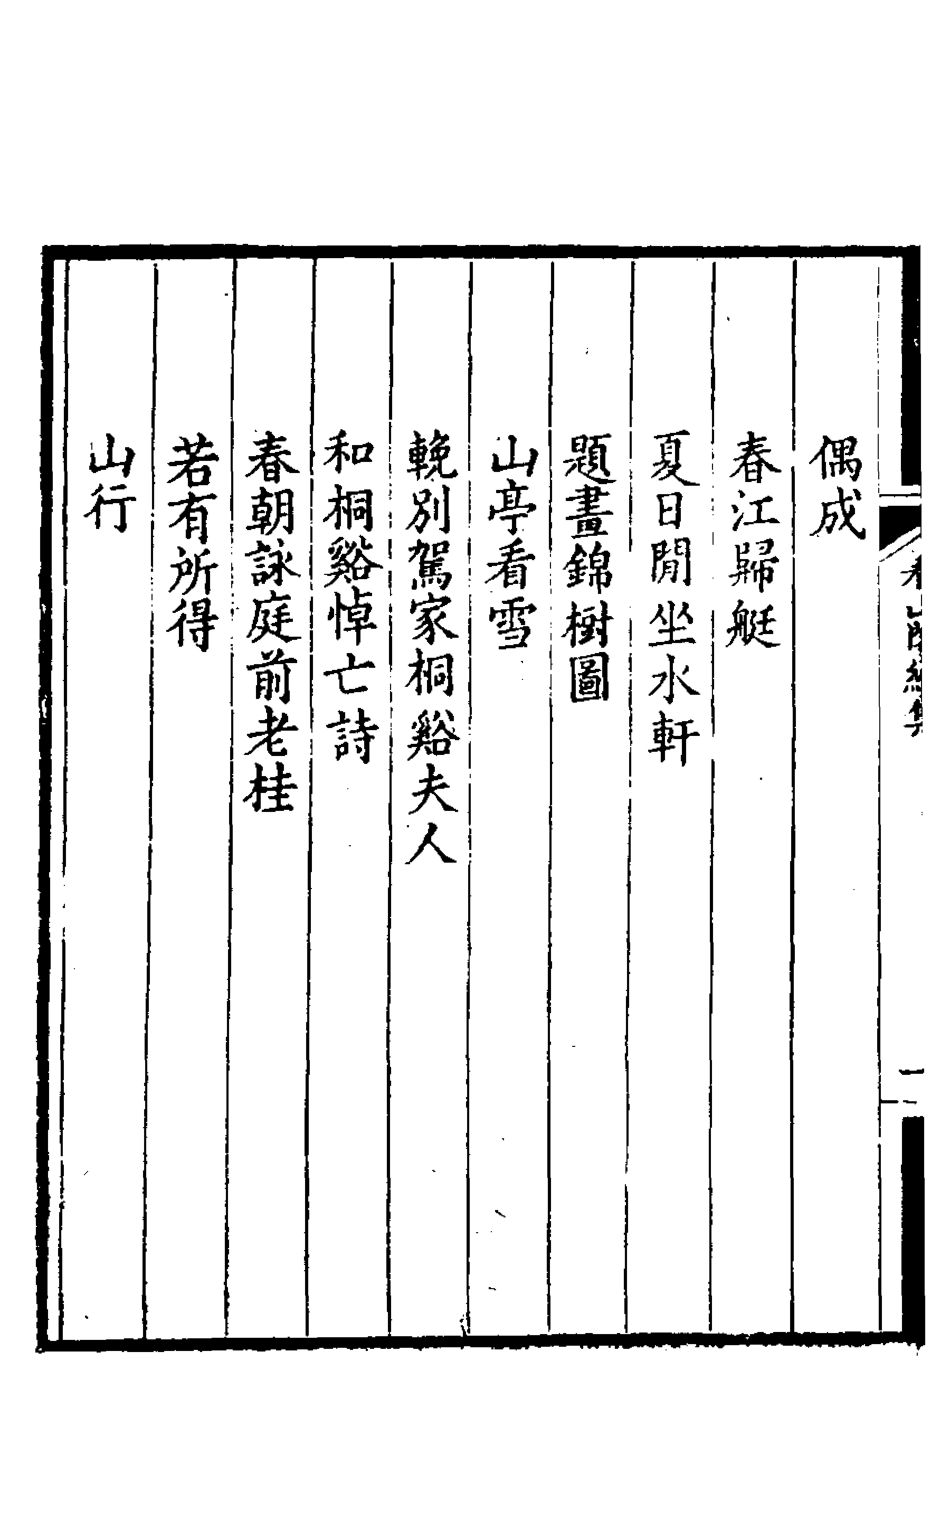 偶成
春江歸艇
夏日閒坐水軒
題晝錦樹圖
山亭看雪
輓別駕家桐谿夫人
和桐谿悼亡詩
春朝詠庭前老桂
若有所得
山行